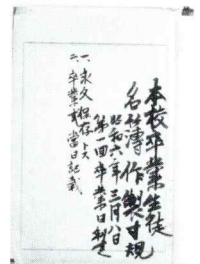 本校卒業生徒
名簿作製寸規
昭和六年三月八日
第一回卒業日制定
一、永久保存トス
二、卒業式当日記載